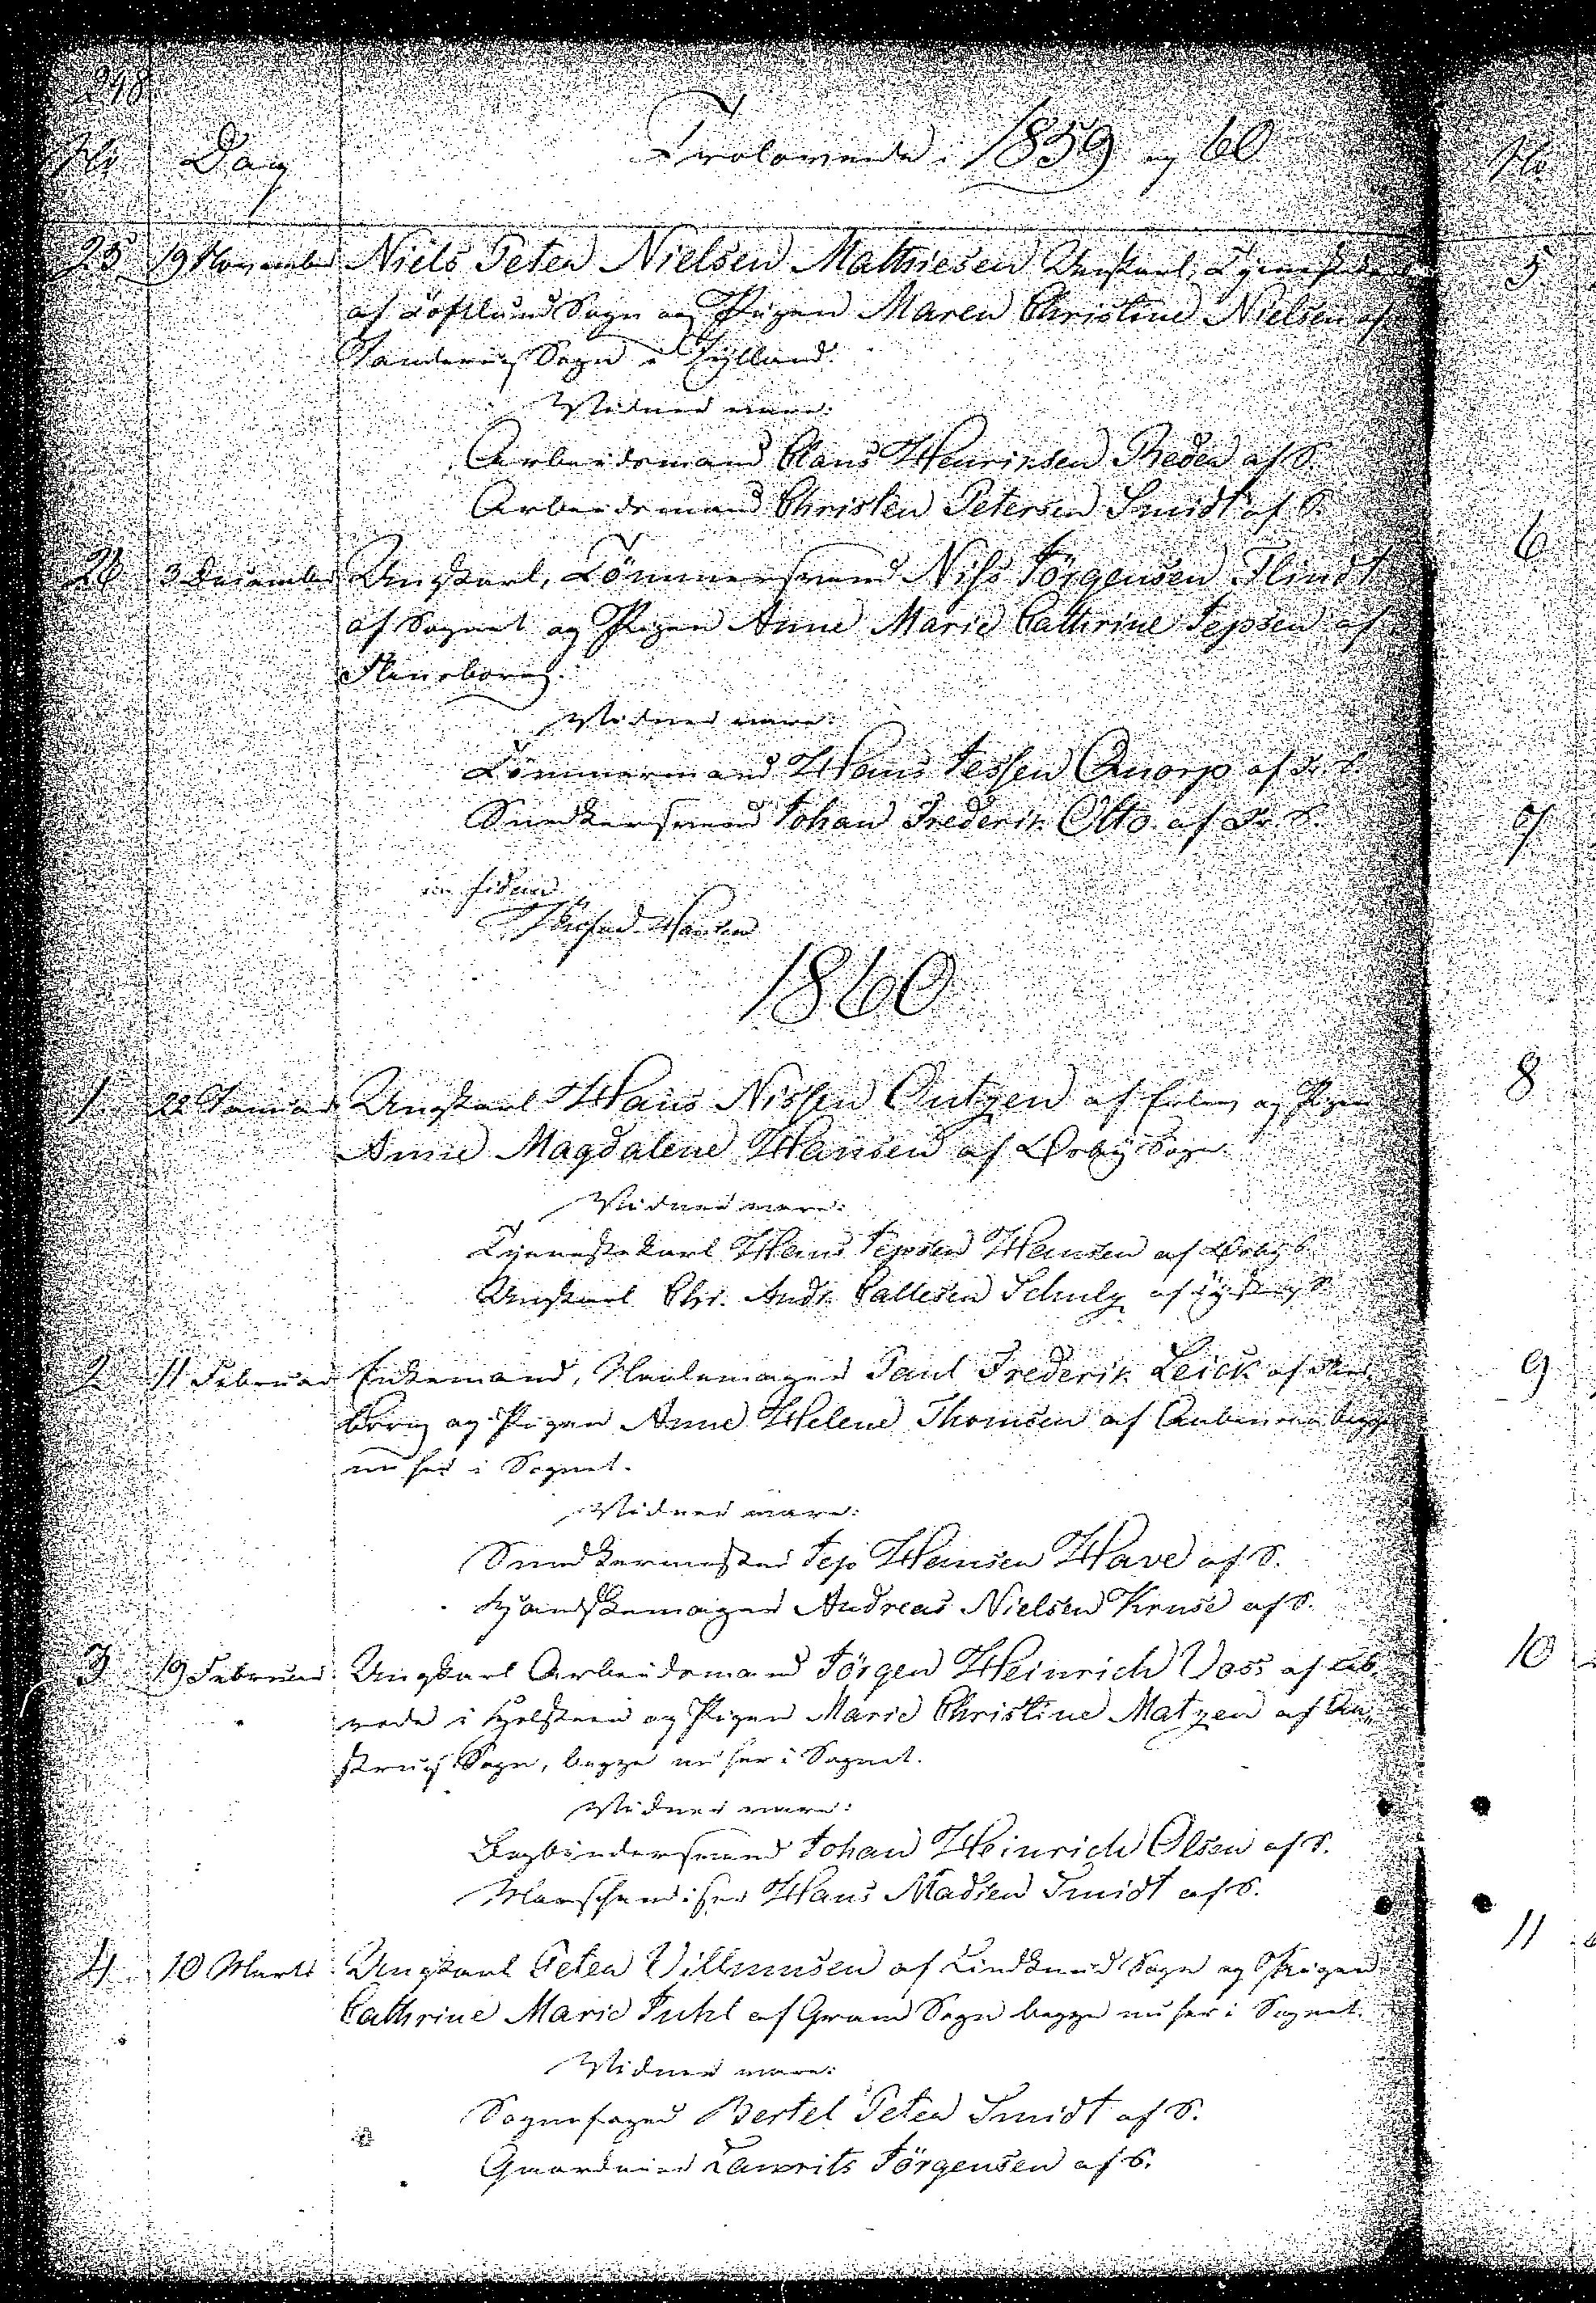 248
No Dag Trolovede i 1859 og 60
25 19 November Niels Peter Nielsen Mathiesen Ungkarl, Tjenestekarl
af Toftlund Sogn og Pigen Maren Christine Nielsen af
Sogn i Jylland.
Vidner vare:
Arbeidsmand Claus Henriksen Reder af S.
Arbeidsmand Christen Petersen Smidt af S.
26 3 December Ungkarl, Tömmersvend Nifs Jörgensen Flindt
af Sognet og Pigen Anne Marie Cathrine Jepsen af
Flensborg.
Vidner vare:
Tömmermand Hans Jessen Quorp af Fr. S.
Snedkersvend Johan Frederik Otto af Fr. S.
in fidem
Hansen
1860
1 22 Januar Ungkarl Hans Nissen Outzen af og Pigen
Anne Magdalene Hansen af Sogn.
Vidner vare:
Tjenestekarl Hans Jepsen Hansen af
Ungkarl Chr. Andr. Callesen Schulz af
2 11 Februar Enkemand, Paul Frederik Leick af
borg og Pigen Anne Helene Thomsen af Aabenraa begge
nu her i Sognet.
Vidner vare:
Snedkermester Jep Hansen Have af S.
Handskemager Andreas Nielsen Kruse af S.
3 19 Februar Ungkarl Arbeidsmand Jörgen Heinrich Voss af
rade i Holsteen og Pigen Marie Christine Matzen af Au„
strup Sogn, begge nu her i Sognet.
Vidner vare:
Bogbindersvend Johan Heinrich Olsen af S.
Marschandiser Hans Madsen Smidt af S.
4 10 Marts Ungkarl Peter Villumsen af Lindknud Sogn og Pigen
Cathrine Marie Juhl af Gram Sogn begge nu her i Sognet.
Vidner vare:
Sognefoged Bertel Peter Smidt af S.
Gaardeier Laurits Jörgensen af S.
No
5
6
7
8
9
10
11